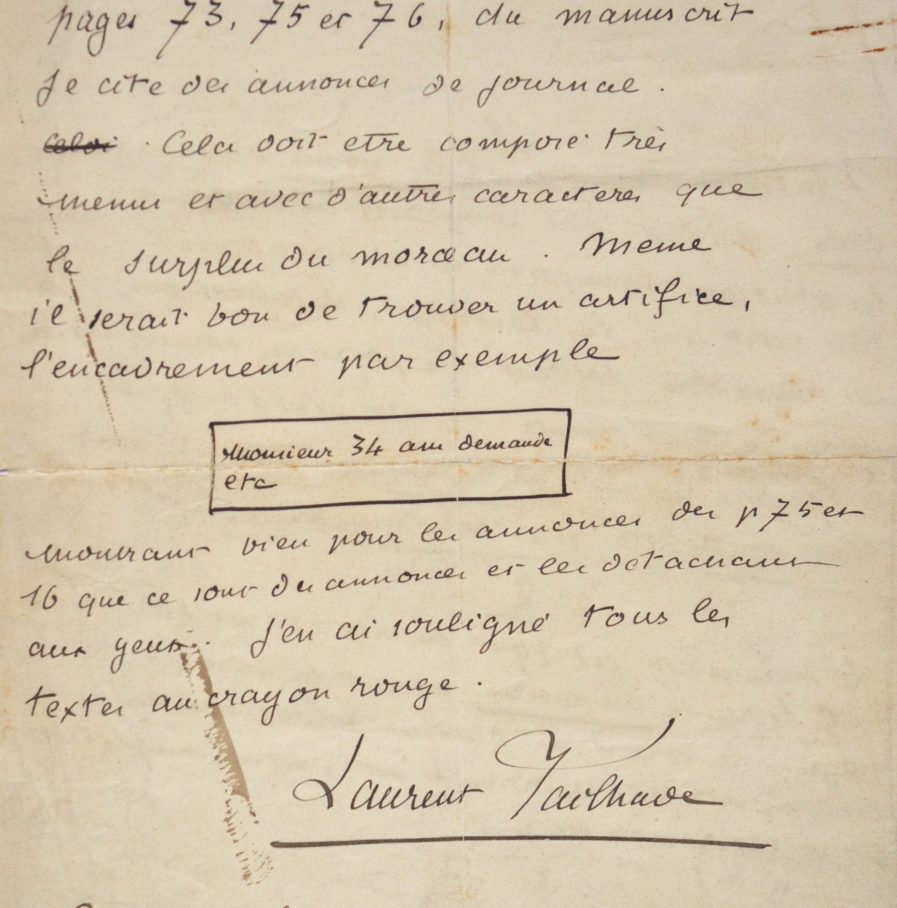 pages 73, 75 et 76, du manuscrit
Je cite des annonces de journal.
Celoi. Cela doit etre composé très
menu et avec d'autres caracteres que
le surplus du morceau. Meme
il serait bon de trouver un artifice,
l'encadrement par exemple
Monsieur 34 ans demande
etc
montrant bien pour les annonces des p 75 et
16 que ce sont des annonces et les détachant
aux yeux. J'en ai souligné tous les
textes au crayon rouge.
Laurent Tailhade